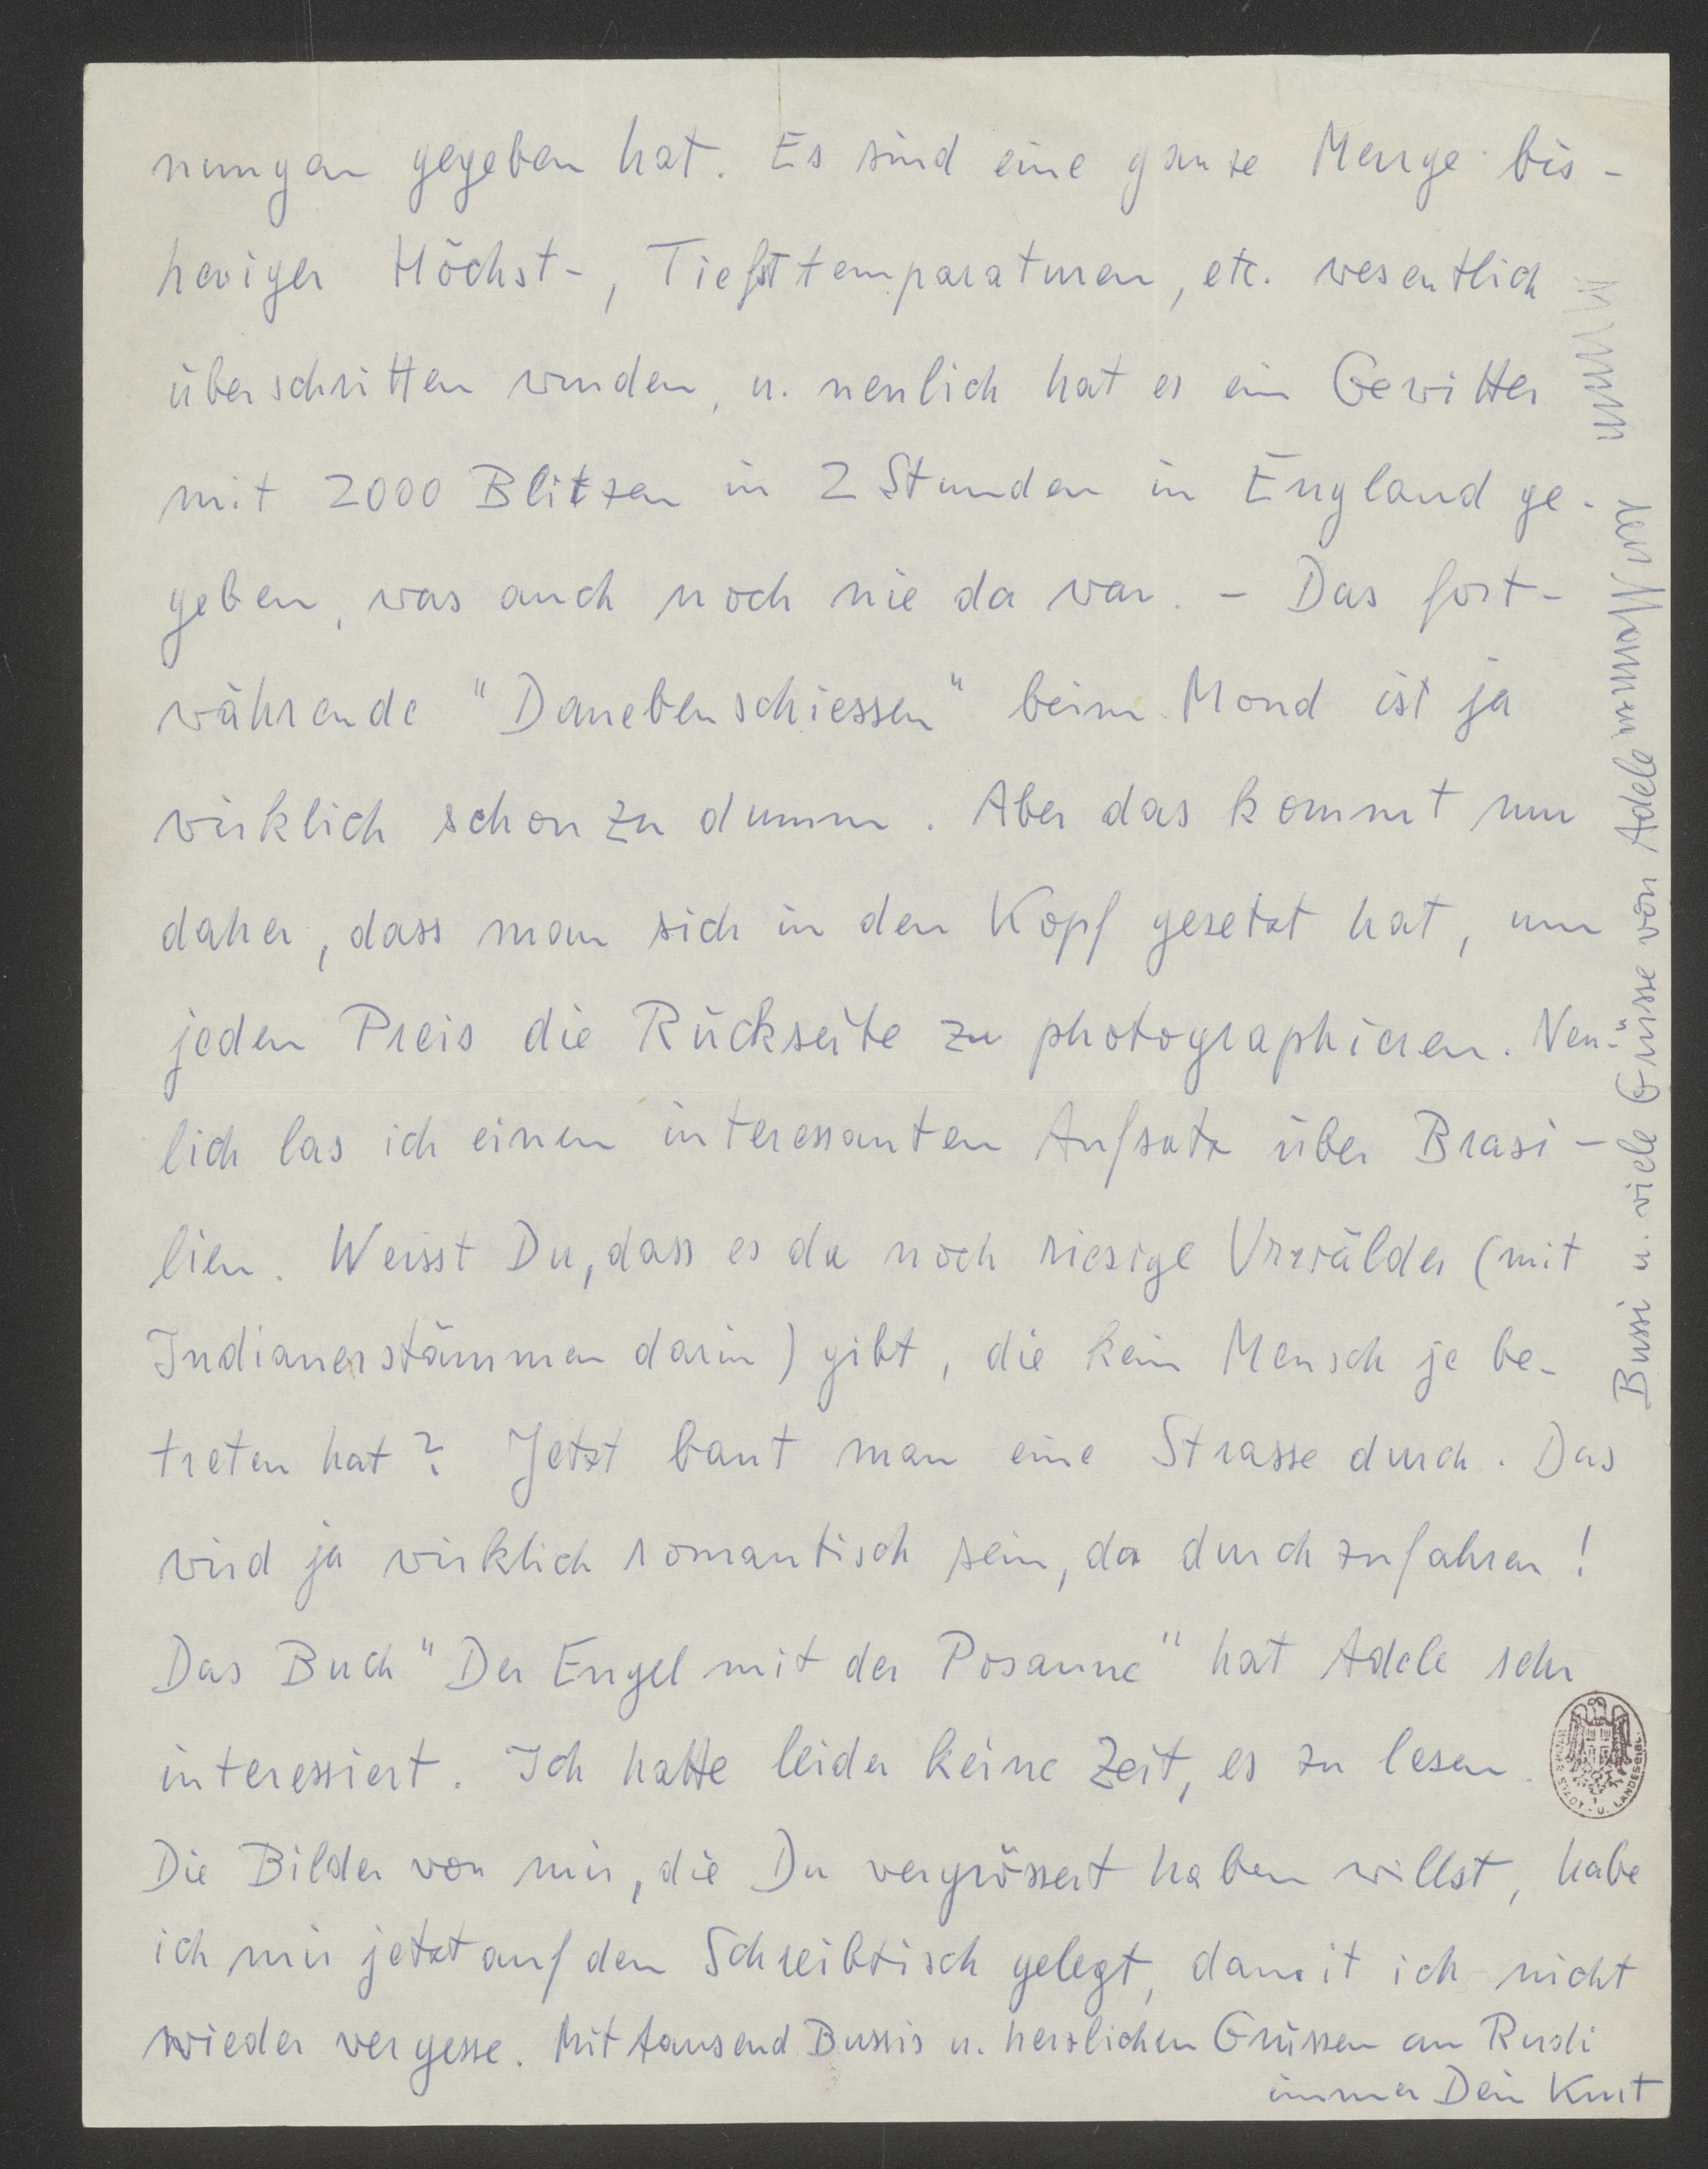 nungen gegeben hat. Es sind eine ganze Menge bis-
heriger Höchst-, Tiefsttemparaturen, etc. wesentlich
überschritten wurden, u. neulich hat es ein Gewitter
mit 2000 Blitzen in 2 Stunden in England ge-
geben, was auch noch nie da war. - Das fort-
währende "Danebenschiessen" beim Mond ist ja
wirklich schon zu dumm. Aber das kommt nur
daher, dass man sich in den Kopf gesetzt hat, um
jeden Preis die Rückseite zu photographieren. Neu-
lich las ich einen interessanten Aufsatz über Brasi-
lien. Weisst Du, dass es da noch riesige Urwälder (mit
Indianerstämmen darin) gibt, die kein Mensch je be-
treten hat? Jetzt baut man eine Strasse durch. Das
wird ja wirklich romantisch sein, da durchzufahren!
Das Buch "Der Engel mit der Posaune" hat Adele sehr
interessiert. Ich hatte leider keine Zeit, es zu lesen.
Die Bilder von mir, die Du vergrössert haben willst, habe
ich mir jetzt auf den Schreibtisch gelegt, damit ich nicht
wieder vergesse. Mit tausend Bussis u. herzlichen Grüssen an Rudi
immer Dein Kurt
Bussi u. viele Grüsse von Adele
STADT- U. LANDESBIBL.